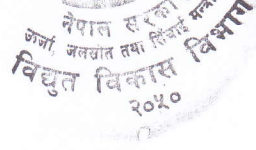 नेपाल सरका
ऊर्जा, जलस्रोत तथा सिंचाई मन्त्रा
विद्युत विकास विभाग
२०५०